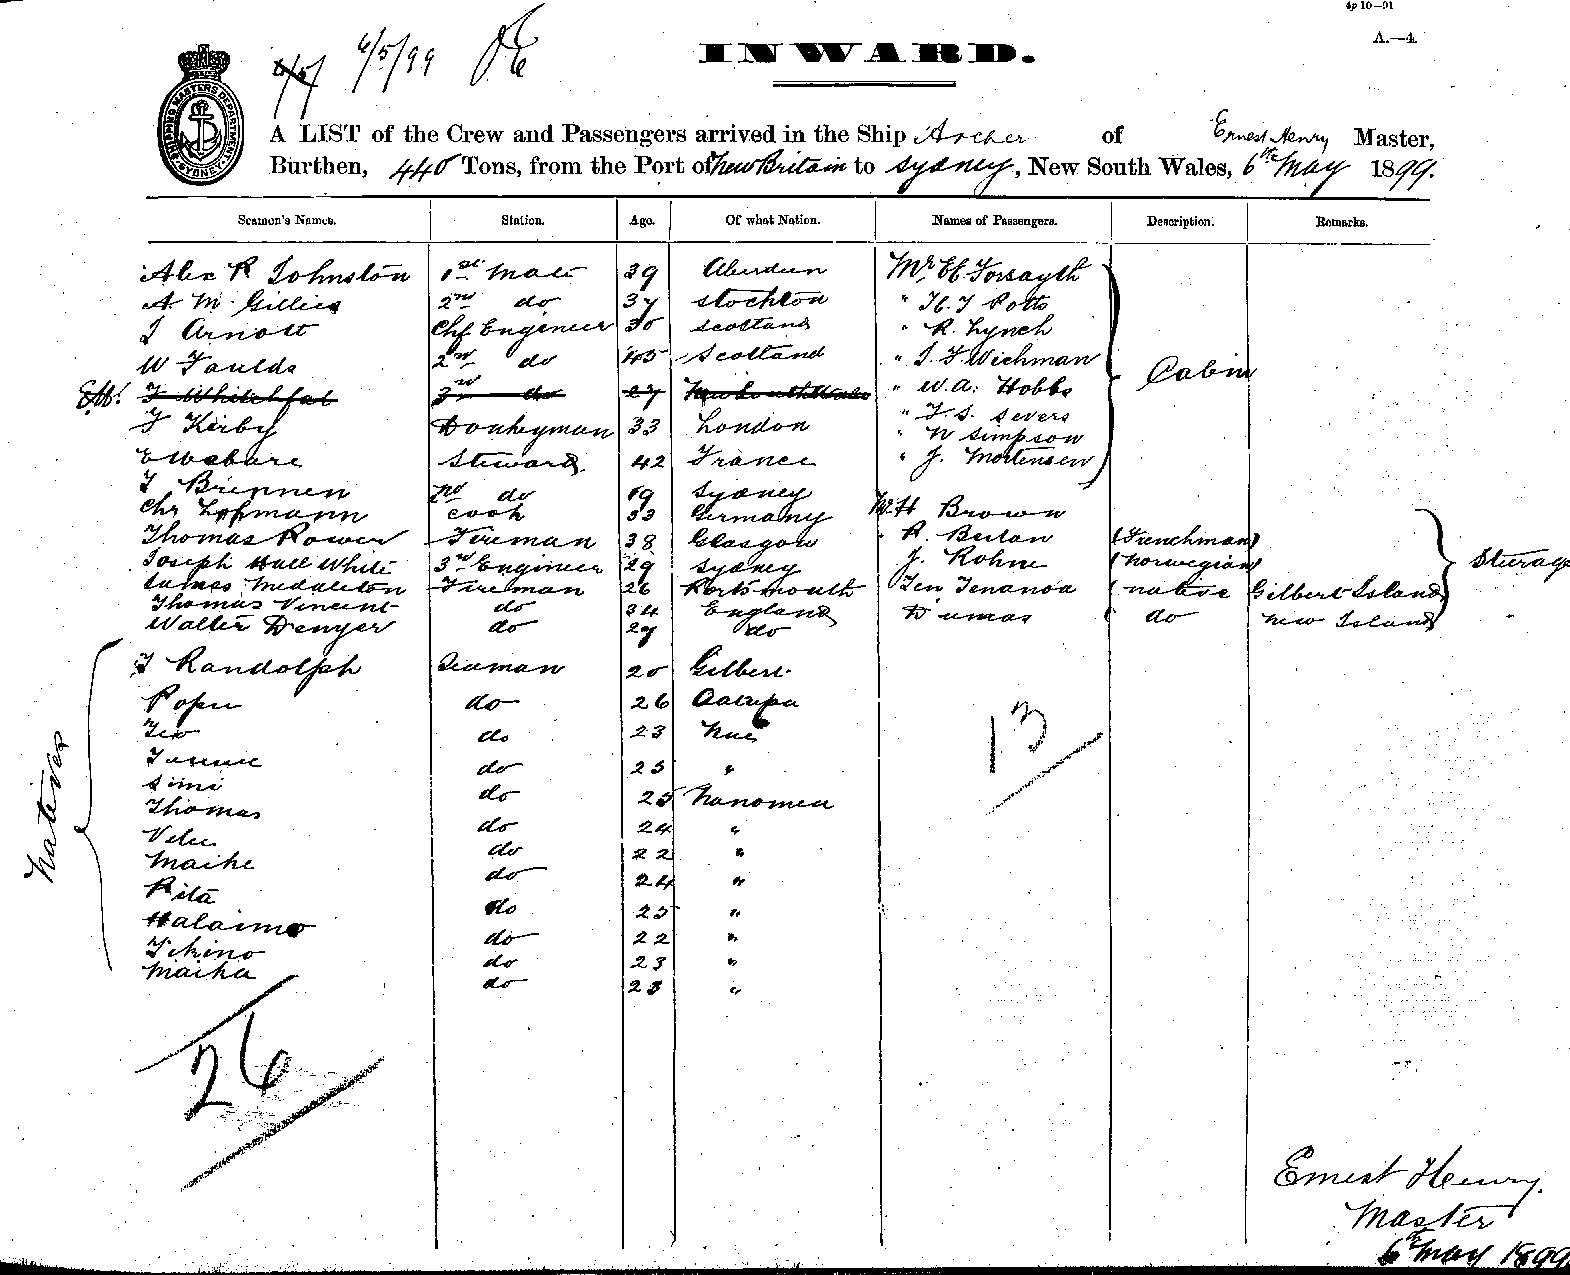 4p 10—91
A.—4.
6/5/99
INWARD.
SHIPPING MASTERS DEPARTMENT SYDNEY
A LIST of the Crew and Passengers arrived in the Ship Archer of Ernest Henry Master,
Burthen, 440 Tons, from the Port of New Britain to Sydney, New South Wales, 6th May 1899.
Seamen's Names. Station. Age. Of what Nation. Names of Passengers. Description. Remarks.
Alex R Johnston 1st Mate 39 Aberdeen Mr Forsayth
A. M. Gillies 2nd do 37 Stockton " H. J Potts
J Arnott Chf Engineer 30 Scotland " R. Lynch
W Faulds 2nd do 45 Scotland " J. F. Wichman Cabin
3rd do 27 New South Wales " W. A. Hobbs
" F. S. Severs
F Kirby Donkeyman 33 London " W Simpson
Steward 42 France " J. Mortensen
J Brennen 2nd do 19 Sydney
Chr Cook 33 Germany W. H Brown
Thomas Power Fireman 38 Glasgow " R. (Frenchman)
Joseph Hall White 3rd Engineer 29 Sydney J. Rohne (Norwegian) Steerage
James Middleton Fireman 26 Portsmouth Ten Tenanoa (native Gilbert Island)
Thomas Vincent do 34 England Dumas ( do New Island)
Walter Denyer do 29 do
Natives
J Randolph Seaman 20 Gilbert
Popu do 26
Teo do 23 Niue
do 25 "
Simi do 25 Nanomea
Thomas do 24 "
do 22 "
Maihe do 24 "
Pita do 25 "
Halaimo do 22 "
do 23 "
Maika do 23 "
13
26
Ernest Henry.
Master
6th May 1899